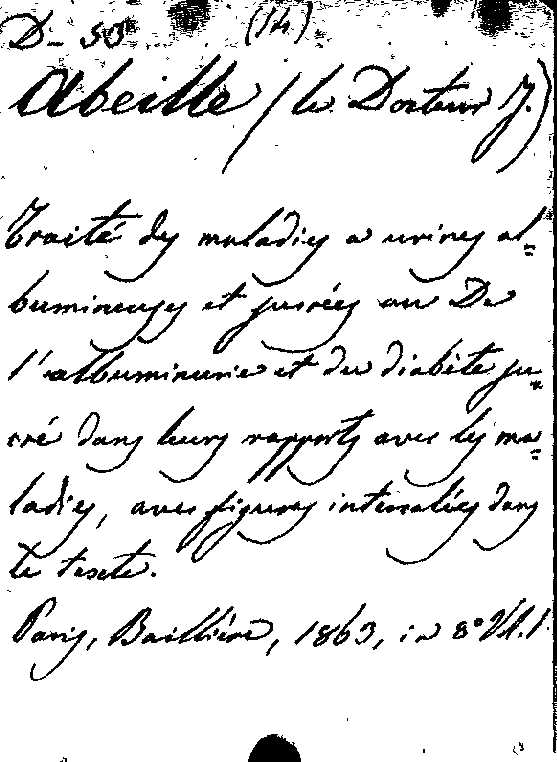 D- 53 (14)
Abeille (le Docteur J.)
Traité des maladies a urines al=
bumineuses et sucrées ou De
l'albuminurie et du diabète su=
cré dans leurs rapports avec les ma=
ladies, avec figures intercalées dans
le texte.
Paris, Baillière, 1863, in 8° Vl. 1